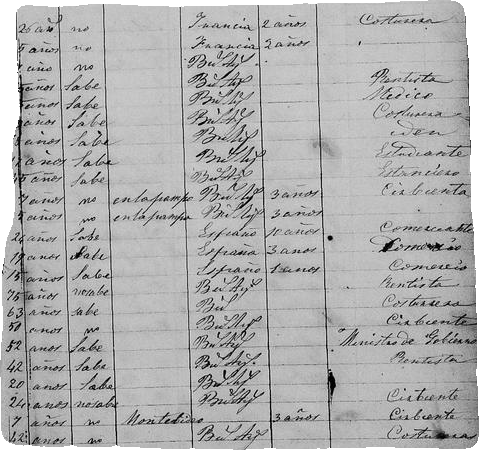 26 año no Francia 2 años Costurera
5 años no Francia 2 años
año no Bus Ays
años Sabe Bus Ays Rentista
años Sabe Bus Ays Medico
años Sabe Bus Ays Costurera
años Sabe Bus Ays iden
años Sabe Bus Ays Estudiante
años Sabe Bus Ays Estanciero
años no en la pampa Bus Ays 3 años Cirbienta
5 años no en la pampa Bus Ays 3 años
24 años Sabe España 10 años Comerciante
19 años Sabe España 3 años Comercio
15 años Sabe España 1 años Comercio
75 años no sabe Bus Ays Rentista
63 años sabe Bus Costurera
50 anos no Bus Ays Cirbiente
52 anos Sabe Bus Ays Ministro de Gobierno
42 años Sabe Bus Ays Rentista
20 años Sabe Bus Ays
24 anos no sabe Bus Ays Cirbiente
7 años no Montebideo 3 años Cirbiente
62 anos no Bus Ays Costurera